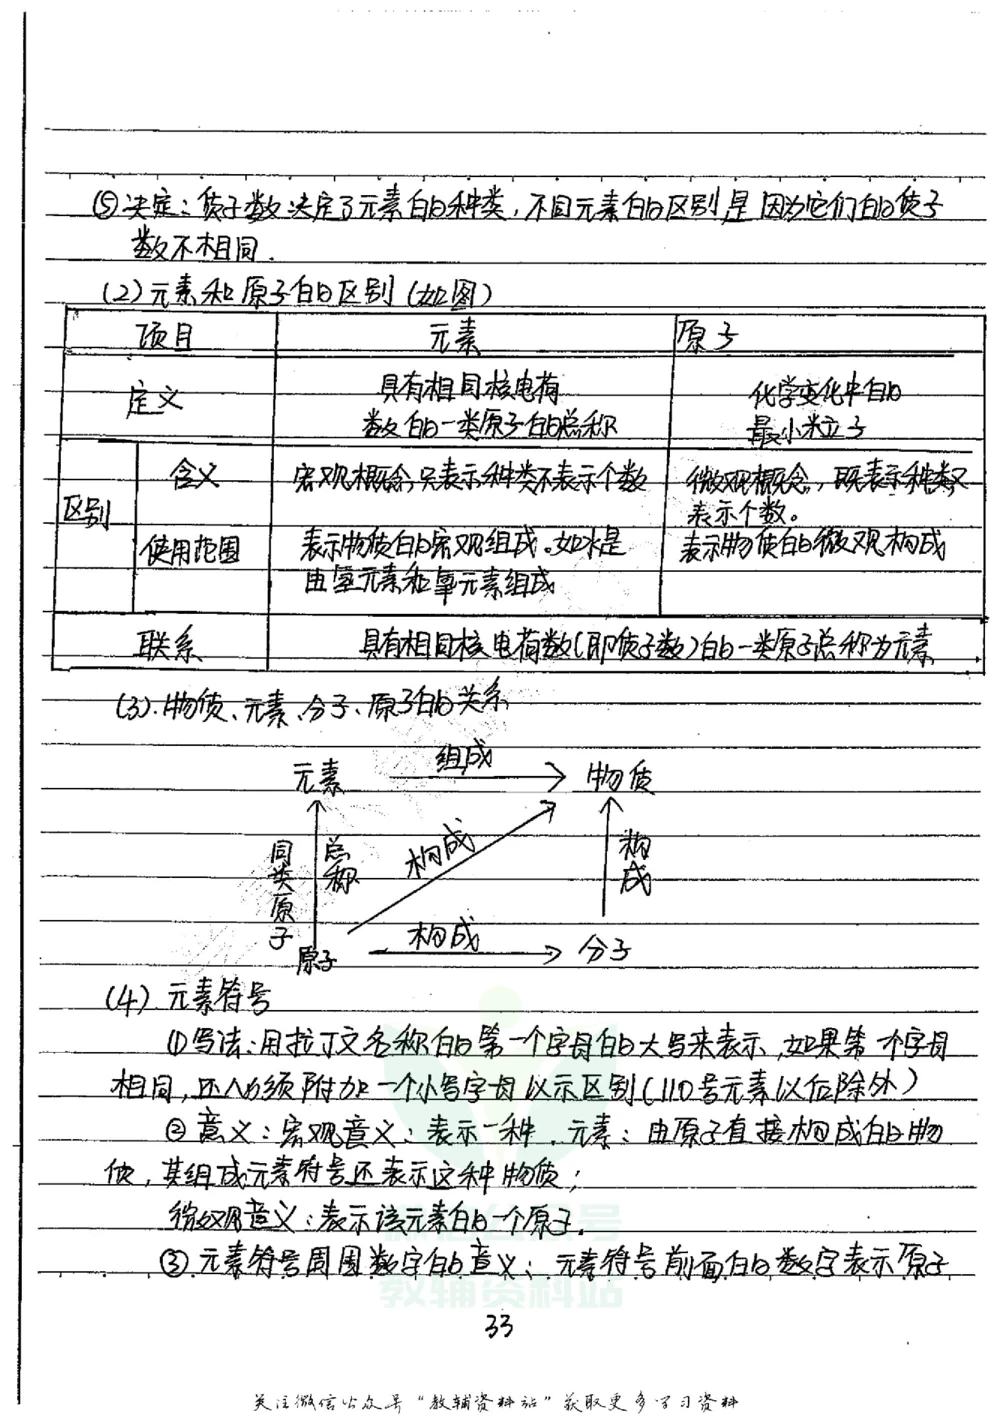 ⑤决定：质子数决定了元素的种类，不同元素的区别是因为它们的质子
数不相同.
(2)元素和原子的区别(如图)
项目 元素 原子
定义 具有相同核电荷数的一类原子的总称 化学变化中的最小粒子
区别
含义 宏观概念,只表示种类不表示个数 微观概念，既表示种类又表示个数。
使用范围 表示物质的宏观组成。如水是由氢元素和氧元素组成 表示物质的微观构成
联系 具有相同核电荷数(即质子数)的一类原子总称为元素
(3).物质、元素、分子、原子的关系
元素 组成 物质
同类原子 总称 构成 构成
原子 构成 分子
(4) 元素符号
①写法:用拉丁文名称的第一个字母的大写来表示,如果第一个字母
相同,还必须附加一个小写字母以示区别(110号元素以后除外)
②意义：宏观意义：表示一种.元素；由原子直接构成的物
质，其组成元素符号还表示这种物质；
微观意义：表示该元素的一个原子.
③元素符号周围数字的意义：元素符号前面的数字表示原子
微信公众号
教辅资料站
33
关注微信公众号"教辅资料站"获取更多学习资料